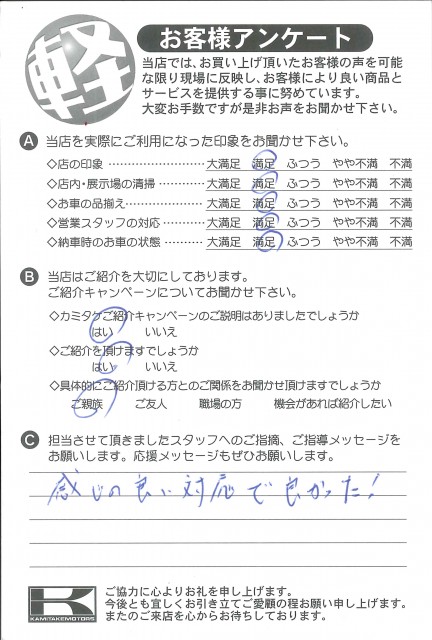 軽
お客様アンケート
当店では、お買い上げ頂いたお客様の声を可能
な限り現場に反映し、お客様により良い商品と
サービスを提供する事に努めています。
大変お手数ですが是非お声をお聞かせ下さい。
A 当店を実際にご利用になった印象をお聞かせ下さい。
◇店の印象 ………………………… 大満足 満足 ふつう やや不満 不満
◇店内・展示場の清掃 …………… 大満足 満足 ふつう やや不満 不満
◇お車の品揃え …………………… 大満足 満足 ふつう やや不満 不満
◇営業スタッフの対応 …………… 大満足 満足 ふつう やや不満 不満
◇納車時のお車の状態 …………… 大満足 満足 ふつう やや不満 不満
B 当店はご紹介を大切にしております。
ご紹介キャンペーンについてお聞かせ下さい。
◇カミタケご紹介キャンペーンのご説明はありましたでしょうか
はい いいえ
◇ご紹介を頂けますでしょうか
はい いいえ
◇具体的にご紹介頂ける方とのご関係をお聞かせ頂けますでしょうか
ご親族 ご友人 職場の方 機会があれば紹介したい
C 担当させて頂きましたスタッフへのご指摘、ご指導メッセージを
お願いします。応援メッセージもぜひお願いします。
感じの良い対応で良かった!
K
KAMITAKEMOTORS
ご協力に心よりお礼を申し上げます。
今後とも宜しくお引き立てご愛顧の程お願い申し上げます。
またのご来店を心からお待ちしております。